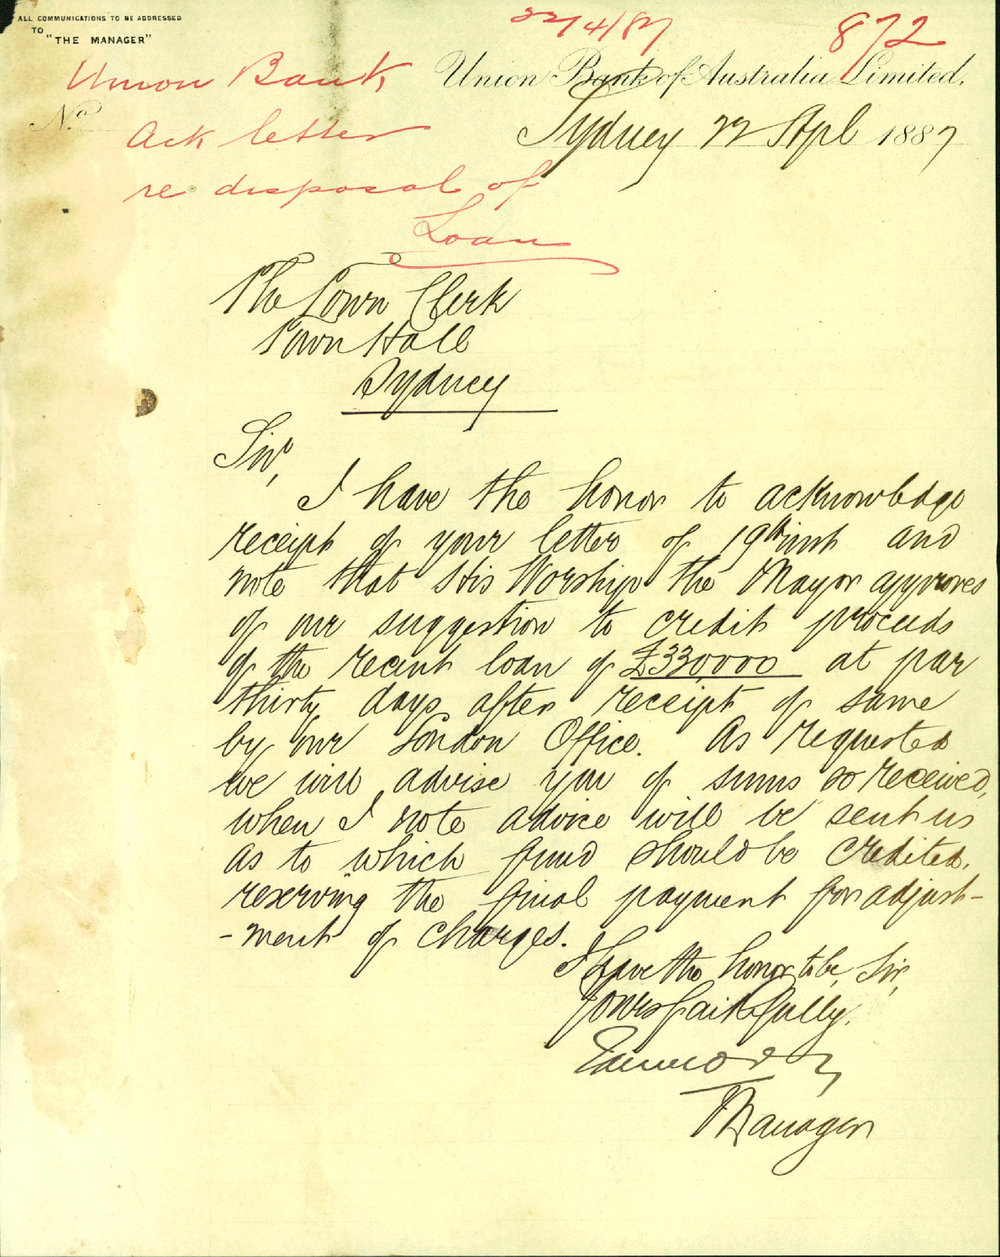 ALL COMMUNICATIONS TO BE ADDRESSED
TO
"THE MANAGER"
22/4/87
872
Union Bank of Australia Limited.
Union Bank
No
Ack letter
re disposal of
Loan
Sydney 22 Apl 1887
The Town Clerk
Town Hall
Sydney
Sir,
I have the honor to acknowledge
receipt of your letter of 19th inst and
note that His Worship the Mayor approves
of our suggestion to credit proceeds
of the recent loan of £330,000 at par
thirty days after receipt of same
by our London Office. As requested
we will advise you of sums so received,
when I note advice will be sent us
as to which fund should be credited,
reserving the final payment for adjust-
-ment of charges.
I have the honor to be, Sir,
Yours faithfully.
Manager